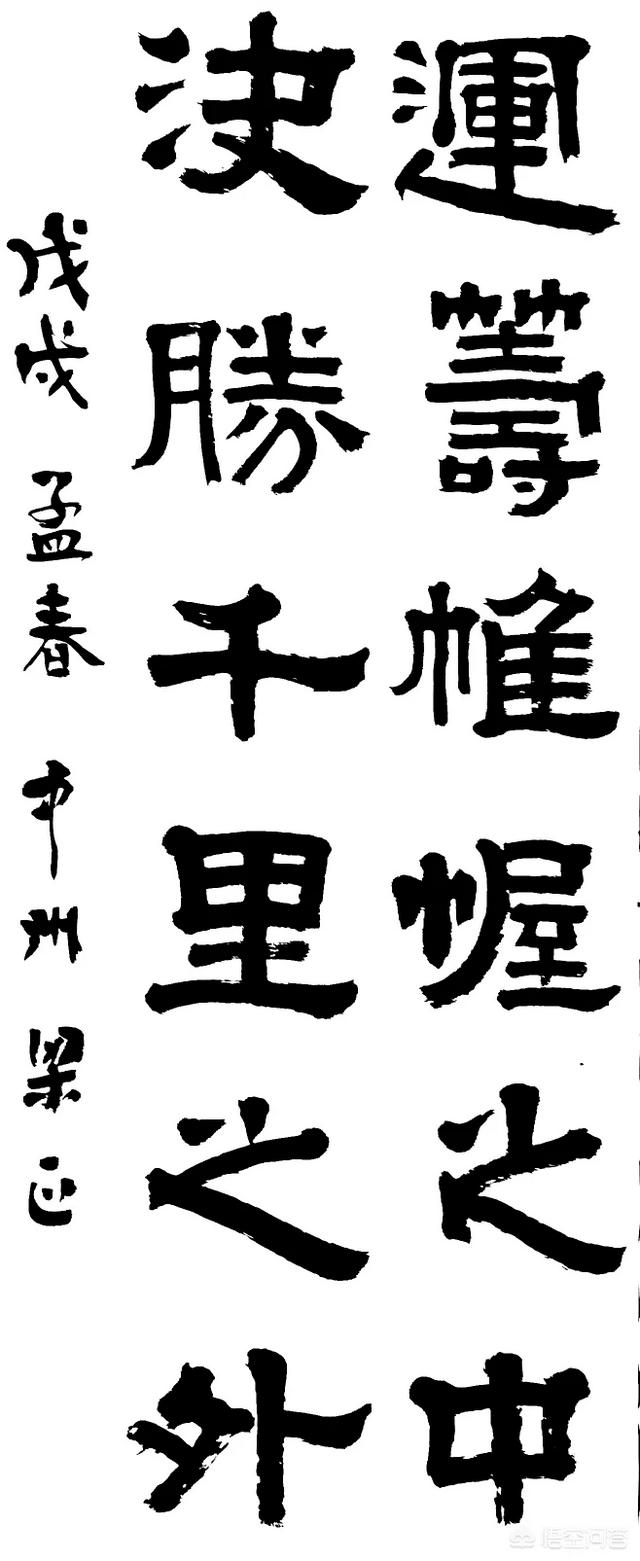 運籌帷幄之中
決勝千里之外
戊戌孟春中州梁正
悟空问答